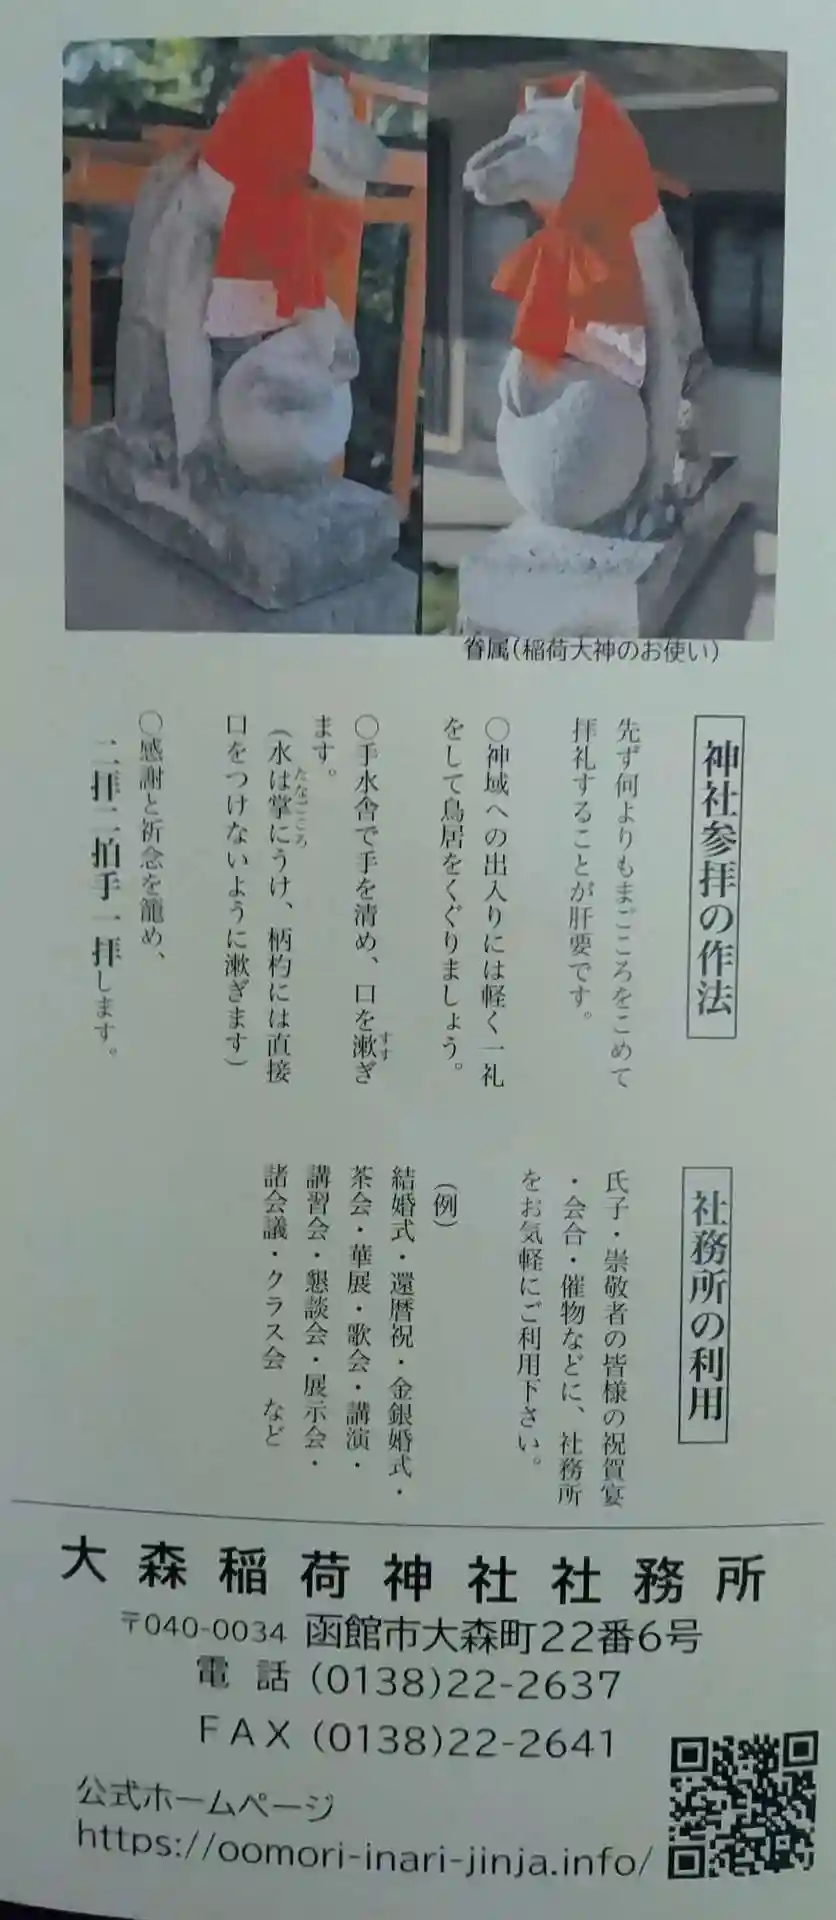 眷属(稲荷大神のお使い)
神社参拝の作法
先ず何よりもまごころをこめて
拝礼することが肝要です。
〇神域への出入りには軽く一礼
をして鳥居をくぐりましょう。
〇手水舎で手を清め、口を漱ぎ
すす
ます。
(水は掌にうけ、柄杓には直接
たなごころ
口をつけないように漱ぎます)
〇感謝と祈念を籠め、
二拝二拍手一拝します。
社務所の利用
氏子・崇敬者の皆様の祝賀宴
・会合・催物などに、社務所
をお気軽にご利用下さい。
(例)
結婚式・還暦祝・金銀婚式・
茶会・華展・歌会・講演・
講習会・懇談会・展示会・
諸会議・クラス会 など
大森稲荷神社社務所
〒040-0034 函館市大森町22番6号
電話(0138)22-2637
FAX(0138)22-2641
公式ホームページ
https://oomori-inari-jinja.info/